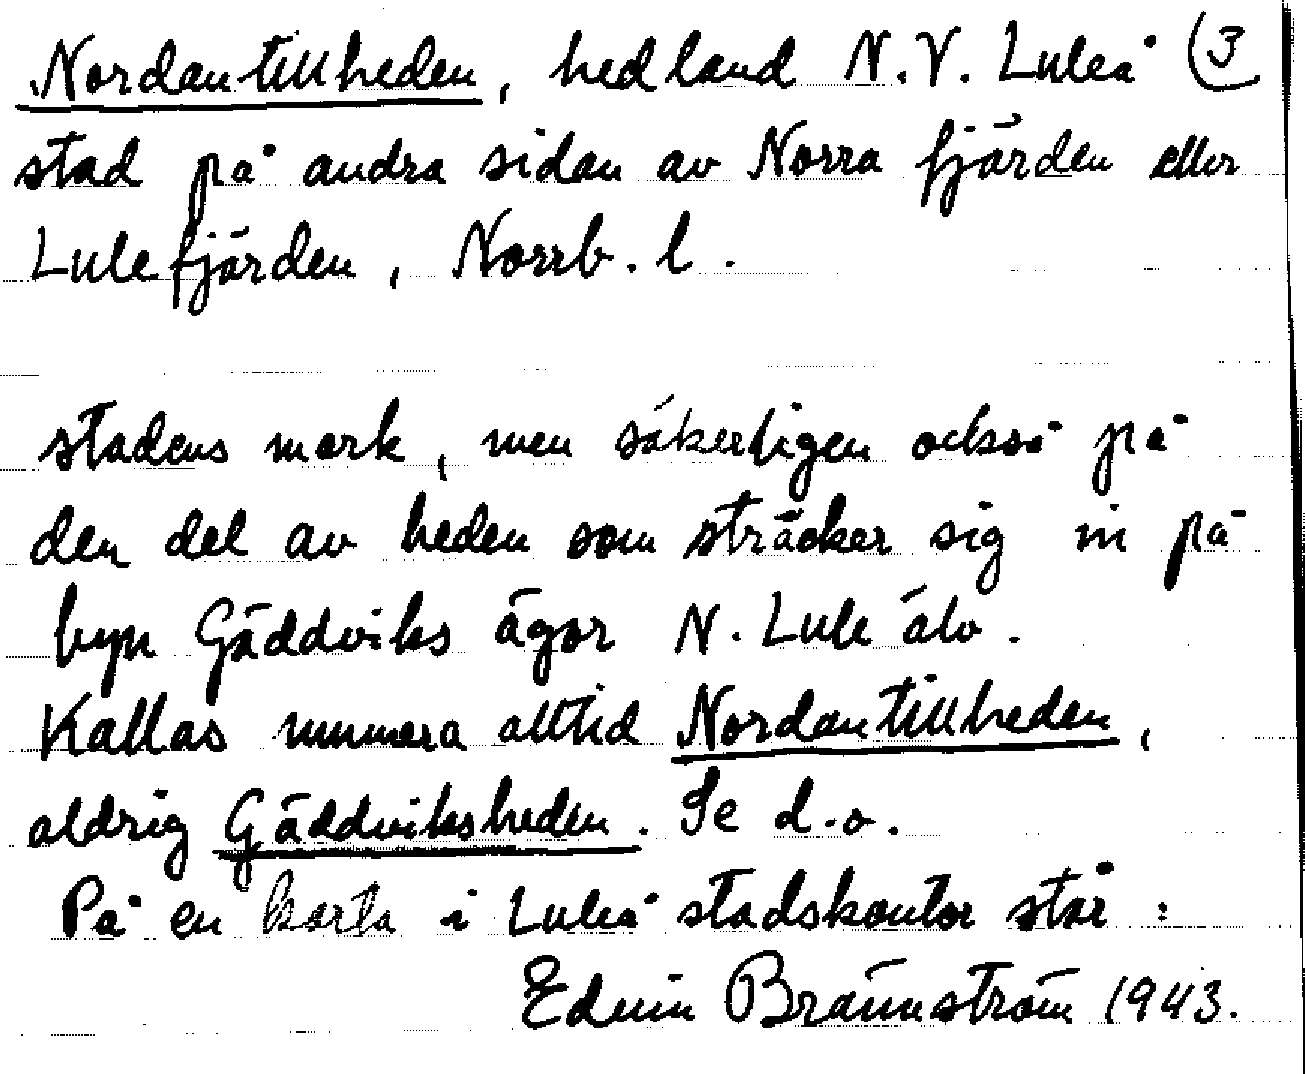 Nordantillheden, hedland N.V. Luleå (3
stad på andra sidan av Norra fjärden eller
Lulefjärden, Norrb. l.
stadens mark, men säkerligen också på
den del av heden som sträcker sig in på
byn Gäddviks ägor N. Lule älv.
Kallas nummera alltid Nordantillheden,
aldrig Gäddviksheden. Se d.o.
På en karta i Luleå stadskontor står:
Edvin Brännström 1943.